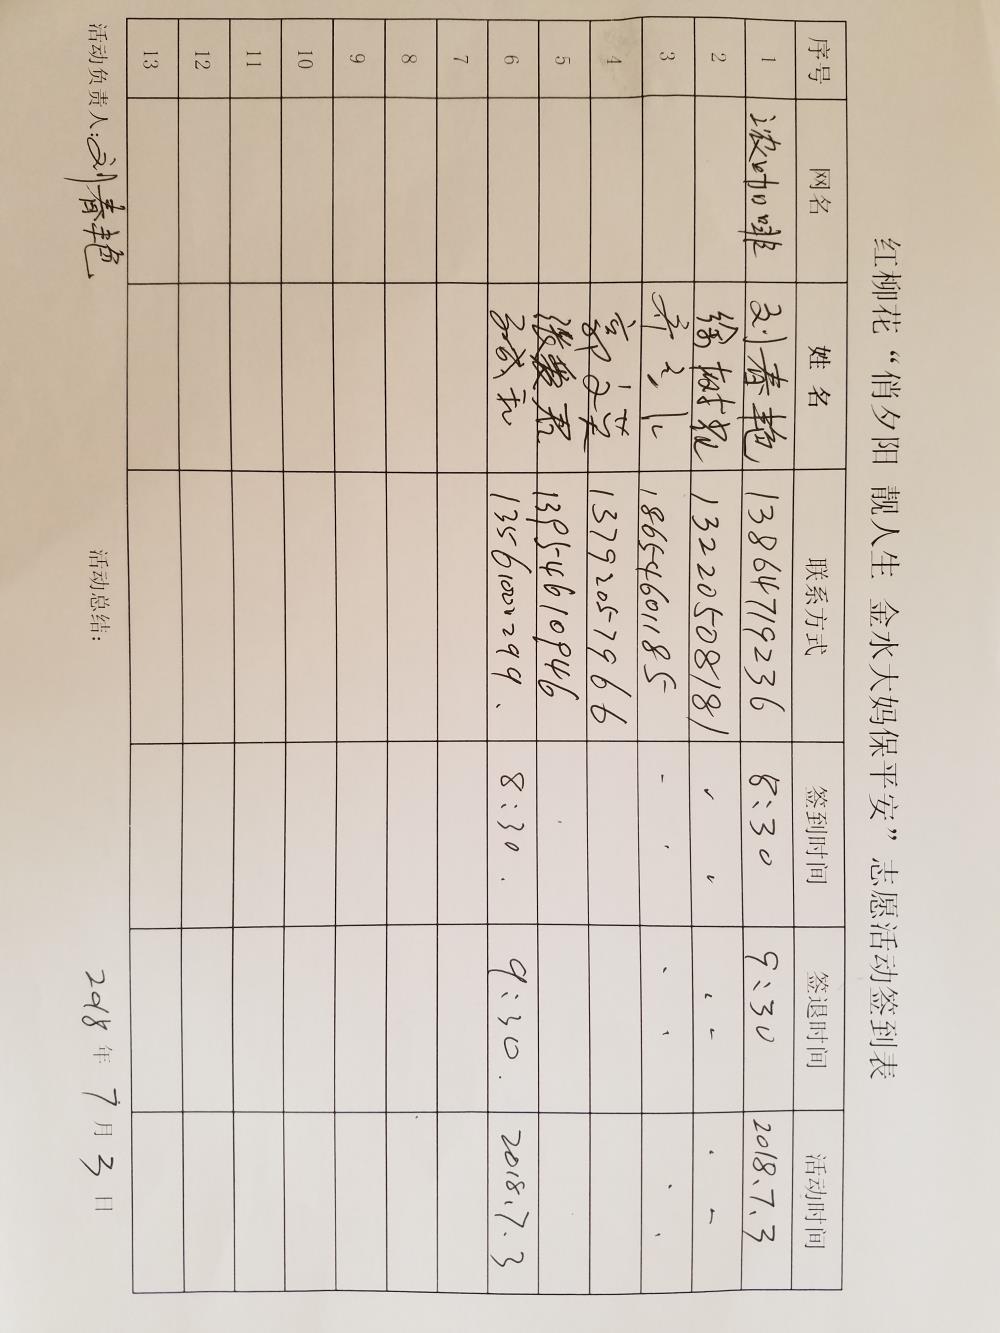 红柳花“俏夕阳 靓人生 金水大妈保平安”志愿活动签到表
序号 网名 姓名 联系方式 签到时间 签退时间 活动时间
1 浓咖啡 刘春艳 13864719236 8:30 9:30 2018.7.3
2 13220508181
3 18654601185
4 13792057966
5 13954610946
6 8:30. 9:30. 2018.7.3
7
8
9
10
11
12
13
活动负责人:刘春艳 活动总结: 2018年7月3日